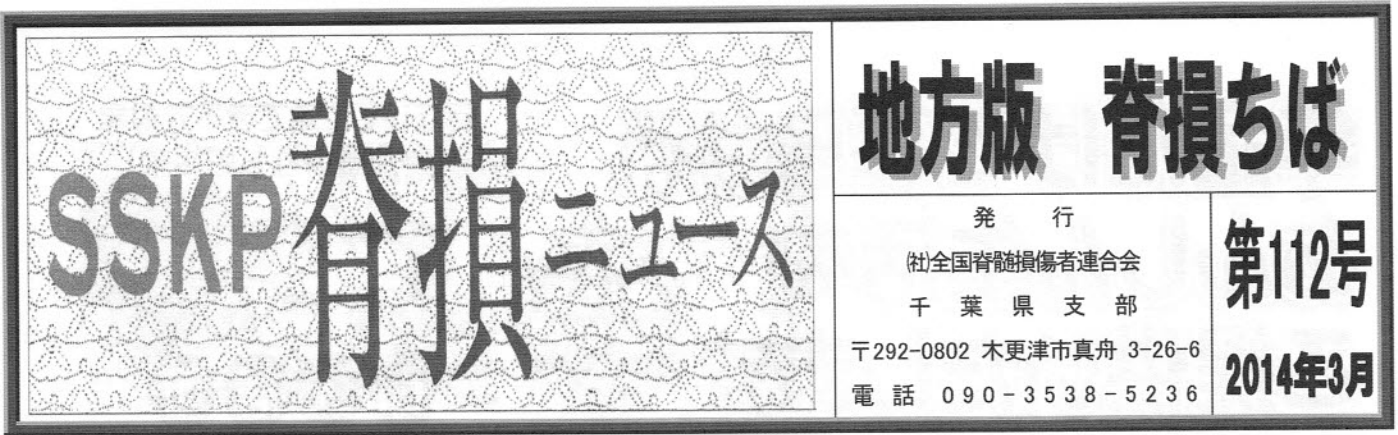 SSKP 脊損ニュース
地方版 脊損ちば
発 行
(社)全国脊髄損傷者連合会
千 葉 県 支 部
〒292-0802 木更津市真舟 3-26-6
電 話 090-3538-5236
第112号
2014年3月